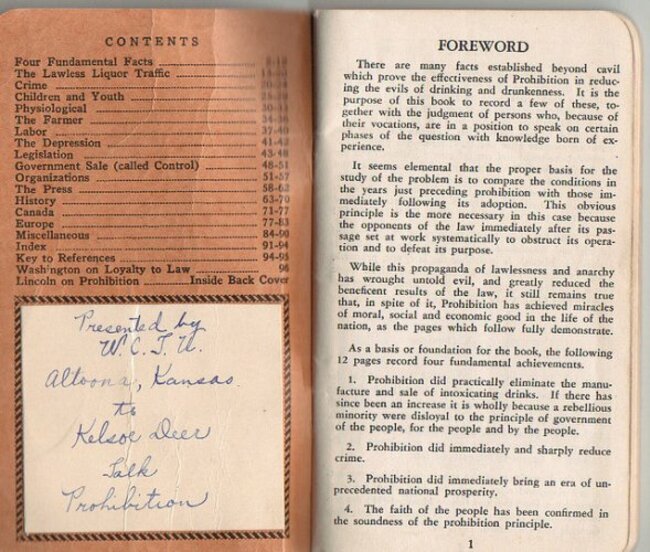 CONTENTS
Four Fundamental Facts
The Lawless Liquor Traffic
Crime
Children and Youth
Physiological 30-33
The Farmer
Labor 37-40
The Depression 41-42
Legislation 43-48
Government Sale (called Control) 48-51
Organizations 51-57
The Press 58-62
History 63-70
Canada 71-77
Europe 77-83
Miscellaneous 84-90
Index 91-94
Key to References 94-95
Washington on Loyalty to Law 96
Lincoln on Prohibition Inside Back Cover
Presented by
W.C.T.U.
Altoona, Kansas
to
Kelsoe Deer
Talk
Prohibition
FOREWORD
There are many facts established beyond cavil
which prove the effectiveness of Prohibition in reduc-
ing the evils of drinking and drunkenness. It is the
purpose of this book to record a few of these, to-
gether with the judgment of persons who, because of
their vocations, are in a position to speak on certain
phases of the question with knowledge born of ex-
perience.
It seems elemental that the proper basis for the
study of the problem is to compare the conditions in
the years just preceding prohibition with those im-
mediately following its adoption. This obvious
principle is the more necessary in this case because
the opponents of the law immediately after its pas-
sage set at work systematically to obstruct its opera-
tion and to defeat its purpose.
While this propaganda of lawlessness and anarchy
has wrought untold evil, and greatly reduced the
beneficent results of the law, it still remains true
that, in spite of it, Prohibition has achieved miracles
of moral, social and economic good in the life of the
nation, as the pages which follow fully demonstrate.
As a basis or foundation for the book, the following
12 pages record four fundamental achievements.
1. Prohibition did practically eliminate the manu-
facture and sale of intoxicating drinks. If there has
since been an increase it is wholly because a rebellious
minority were disloyal to the principle of government
of the people, for the people and by the people.
2. Prohibition did immediately and sharply reduce
crime.
3. Prohibition did immediately bring an era of un-
precedented national prosperity.
4. The faith of the people has been confirmed in
the soundness of the prohibition principle.
1